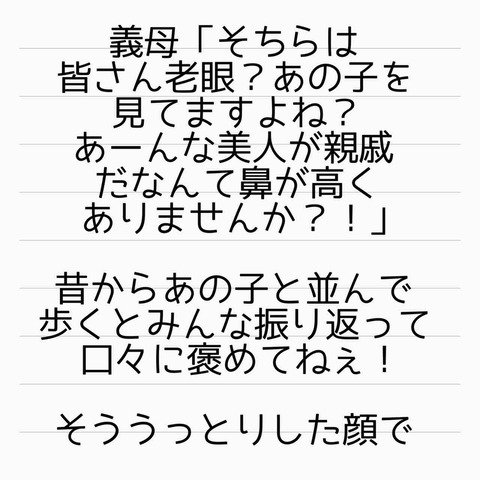 義母「そちらは
皆さん老眼？あの子を
見てますよね？
あーんな美人が親戚
だなんて鼻が高く
ありませんか？！」
昔からあの子と並んで
歩くとみんな振り返って
口々に褒めてねぇ！
そううっとりした顔で